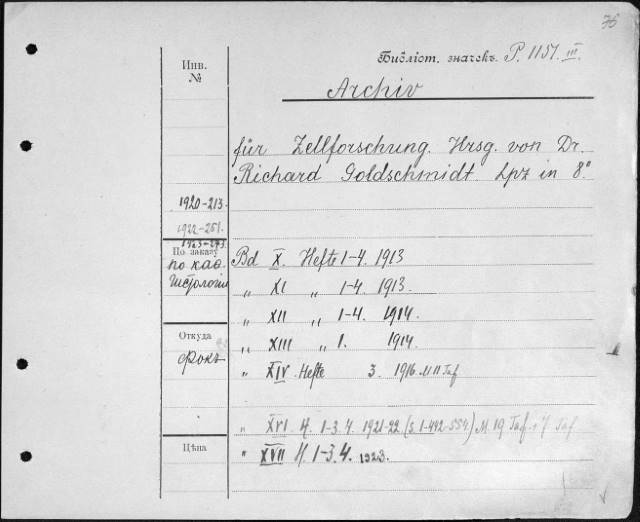 76
Библіот. значекъ P. 1151. III.
Инв.
№
Archiv
für Zellforschung. Hrsg. von Dr.
Richard Goldschmidt. Lpz in 8°
1920-213.
1922-251.
1923-293.
По заказу
по каѳ.
Гистологіи
Bd X. Hefte 1-4. 1913
„ XI „ 1-4. 1913.
„ XII „ 1-4. 1914.
„ XIII „ 1. 1914.
Откуда
Фокъ
„ XIV Hefte 3. 1916. M 11 Taf
„ XVI H. 1-3. 4. 1921-22. (S. 1-492-554.) M. 19 Taf. 7 Taf
Цѣна
„ XVII H. 1-3. 4. 1923.